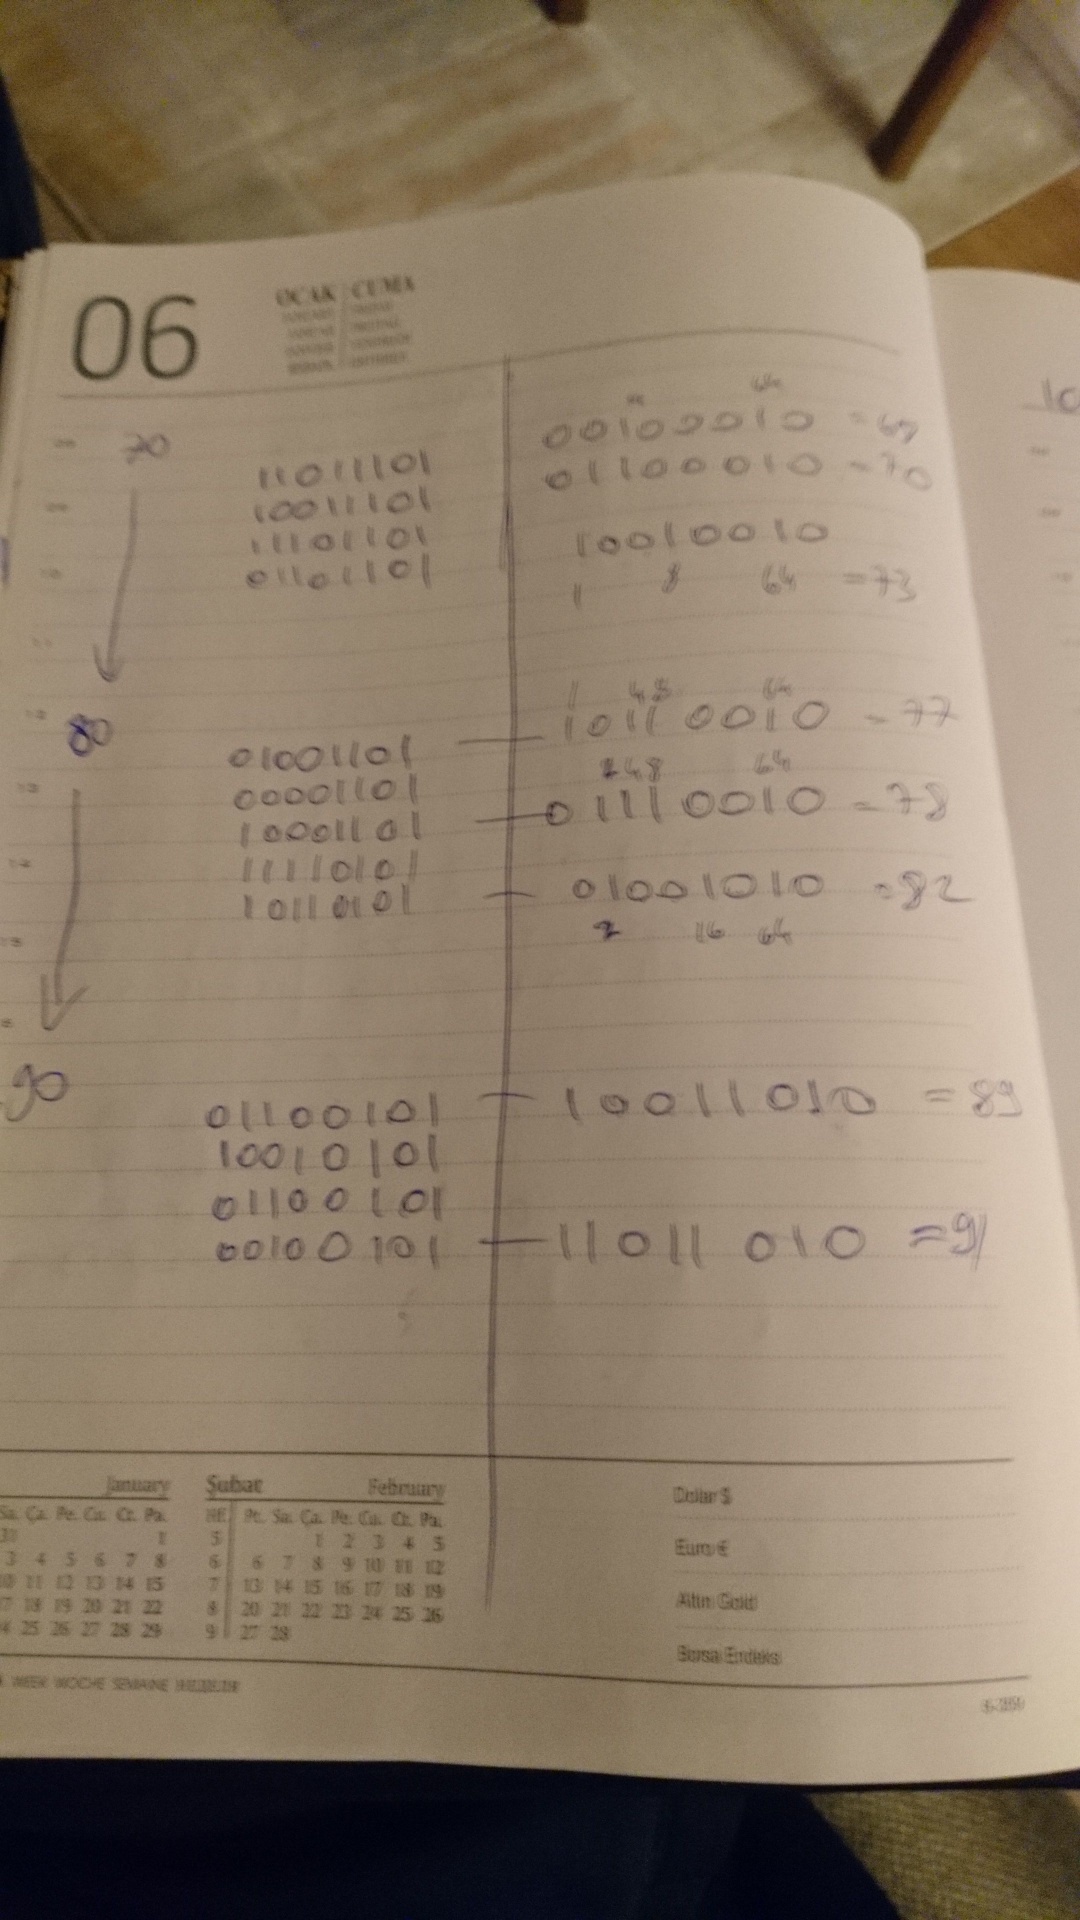 06
OCAK CUMA
70
11011101
10011101
11101101
01101101
64
00100010 = 69
01100010 = 70
10010010
1 8 64 = 73
80
1 48 64
01001101 10110010 = 77
00001101
248 64
10001101 01110010 = 78
11110101
10110101 01001010 = 82
2 16 64
90
01100101 10011010 = 89
10010101
01100101
00100101 11011010 = 91
January
Sa. Ça. Pe. Cu. Ct. Pa.
31 1
3 4 5 6 7 8
10 11 12 13 14 15
17 18 19 20 21 22
24 25 26 27 28 29
Şubat February
HE Pt. Sa. Ça. Pe. Cu. Ct. Pa.
5 1 2 3 4 5
6 6 7 8 9 10 11 12
7 13 14 15 16 17 18 19
8 20 21 22 23 24 25 26
9 27 28
WEEK WOCHE SEMAINE
Dolar $
Euro €
Altın Gold
Borsa Endeks
10